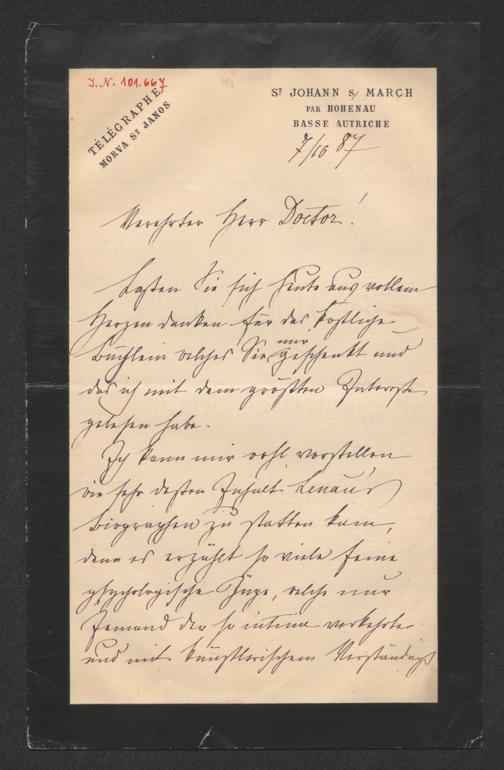 J. N. 101.667
TÉLÉGRAPHE
MORVA ST JANOS
ST JOHANN S/ MARCH
PAR HOHENAU
BASSE AUTRICHE
7/10 87
Verehrter Herr Doctor!
Laßen Sie sich heute aus vollem
Herzen danken für das köstliche
Büchlein welches Sie mir geschenkt und
das ich mit dem größten Interesse
gelesen habe.
Ich kann mir wohl vorstellen
wie sehr dessen Inhalt Lenau's
Biographen zu statten kam,
denn es erzählt so viele feine
psychologische Züge, welche nur
Jemand der so intim verkehrte
und mit künstlerischem Verständniß